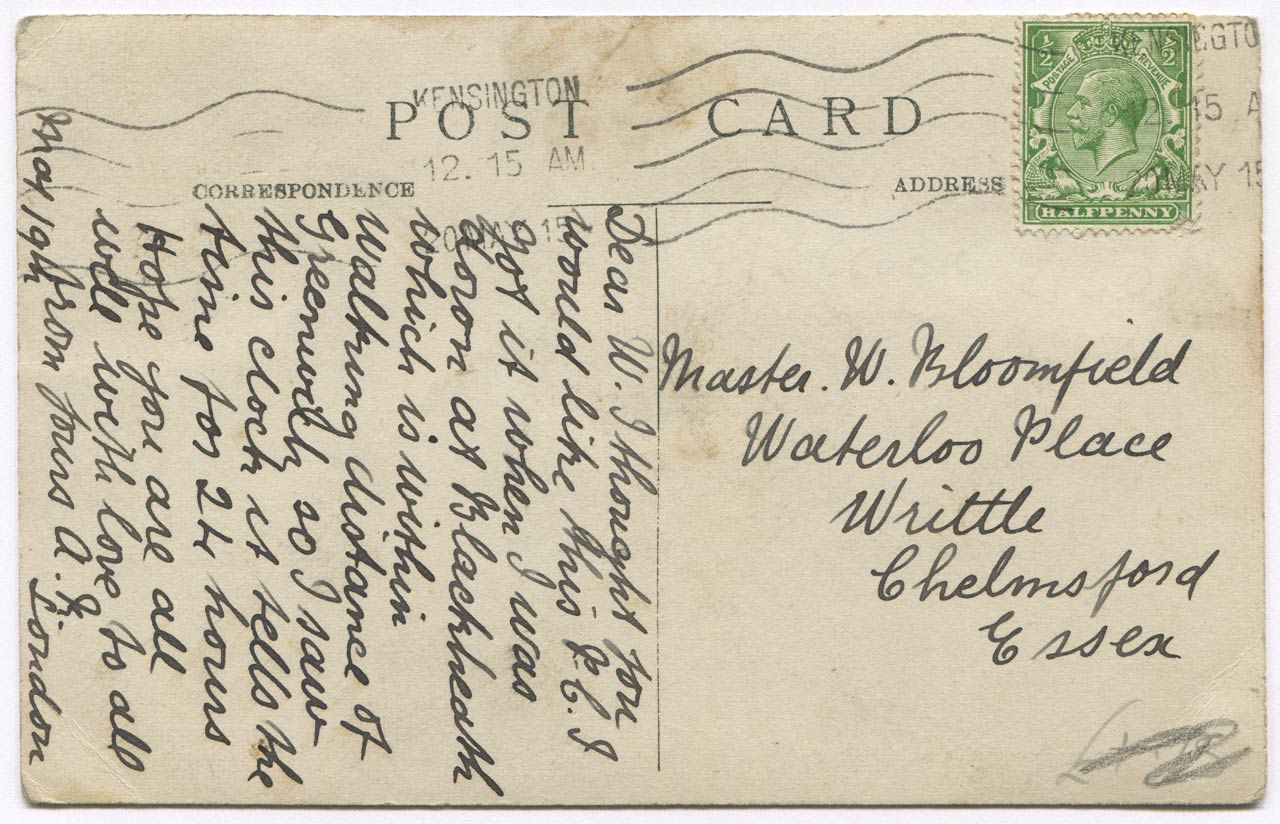 POST CARD
KENSINGTON
12. 15 AM
20 MAY 15
CORRESPONDENCE
ADDRESS
½ ½
POSTAGE REVENUE
HALFPENNY
12. 15 A
20 MAY 15
Dear W. I thought you
would like this P.C. I
got it when I was
down at Blackheath
which is within
walking distance of
Greenwich so I saw
this clock it tells the
time for 24 hours
Hope you are all
well with love to all
from yours A.
May 19th London
Master. W. Bloomfield
Waterloo Place
Writtle
Chelmsford
Essex